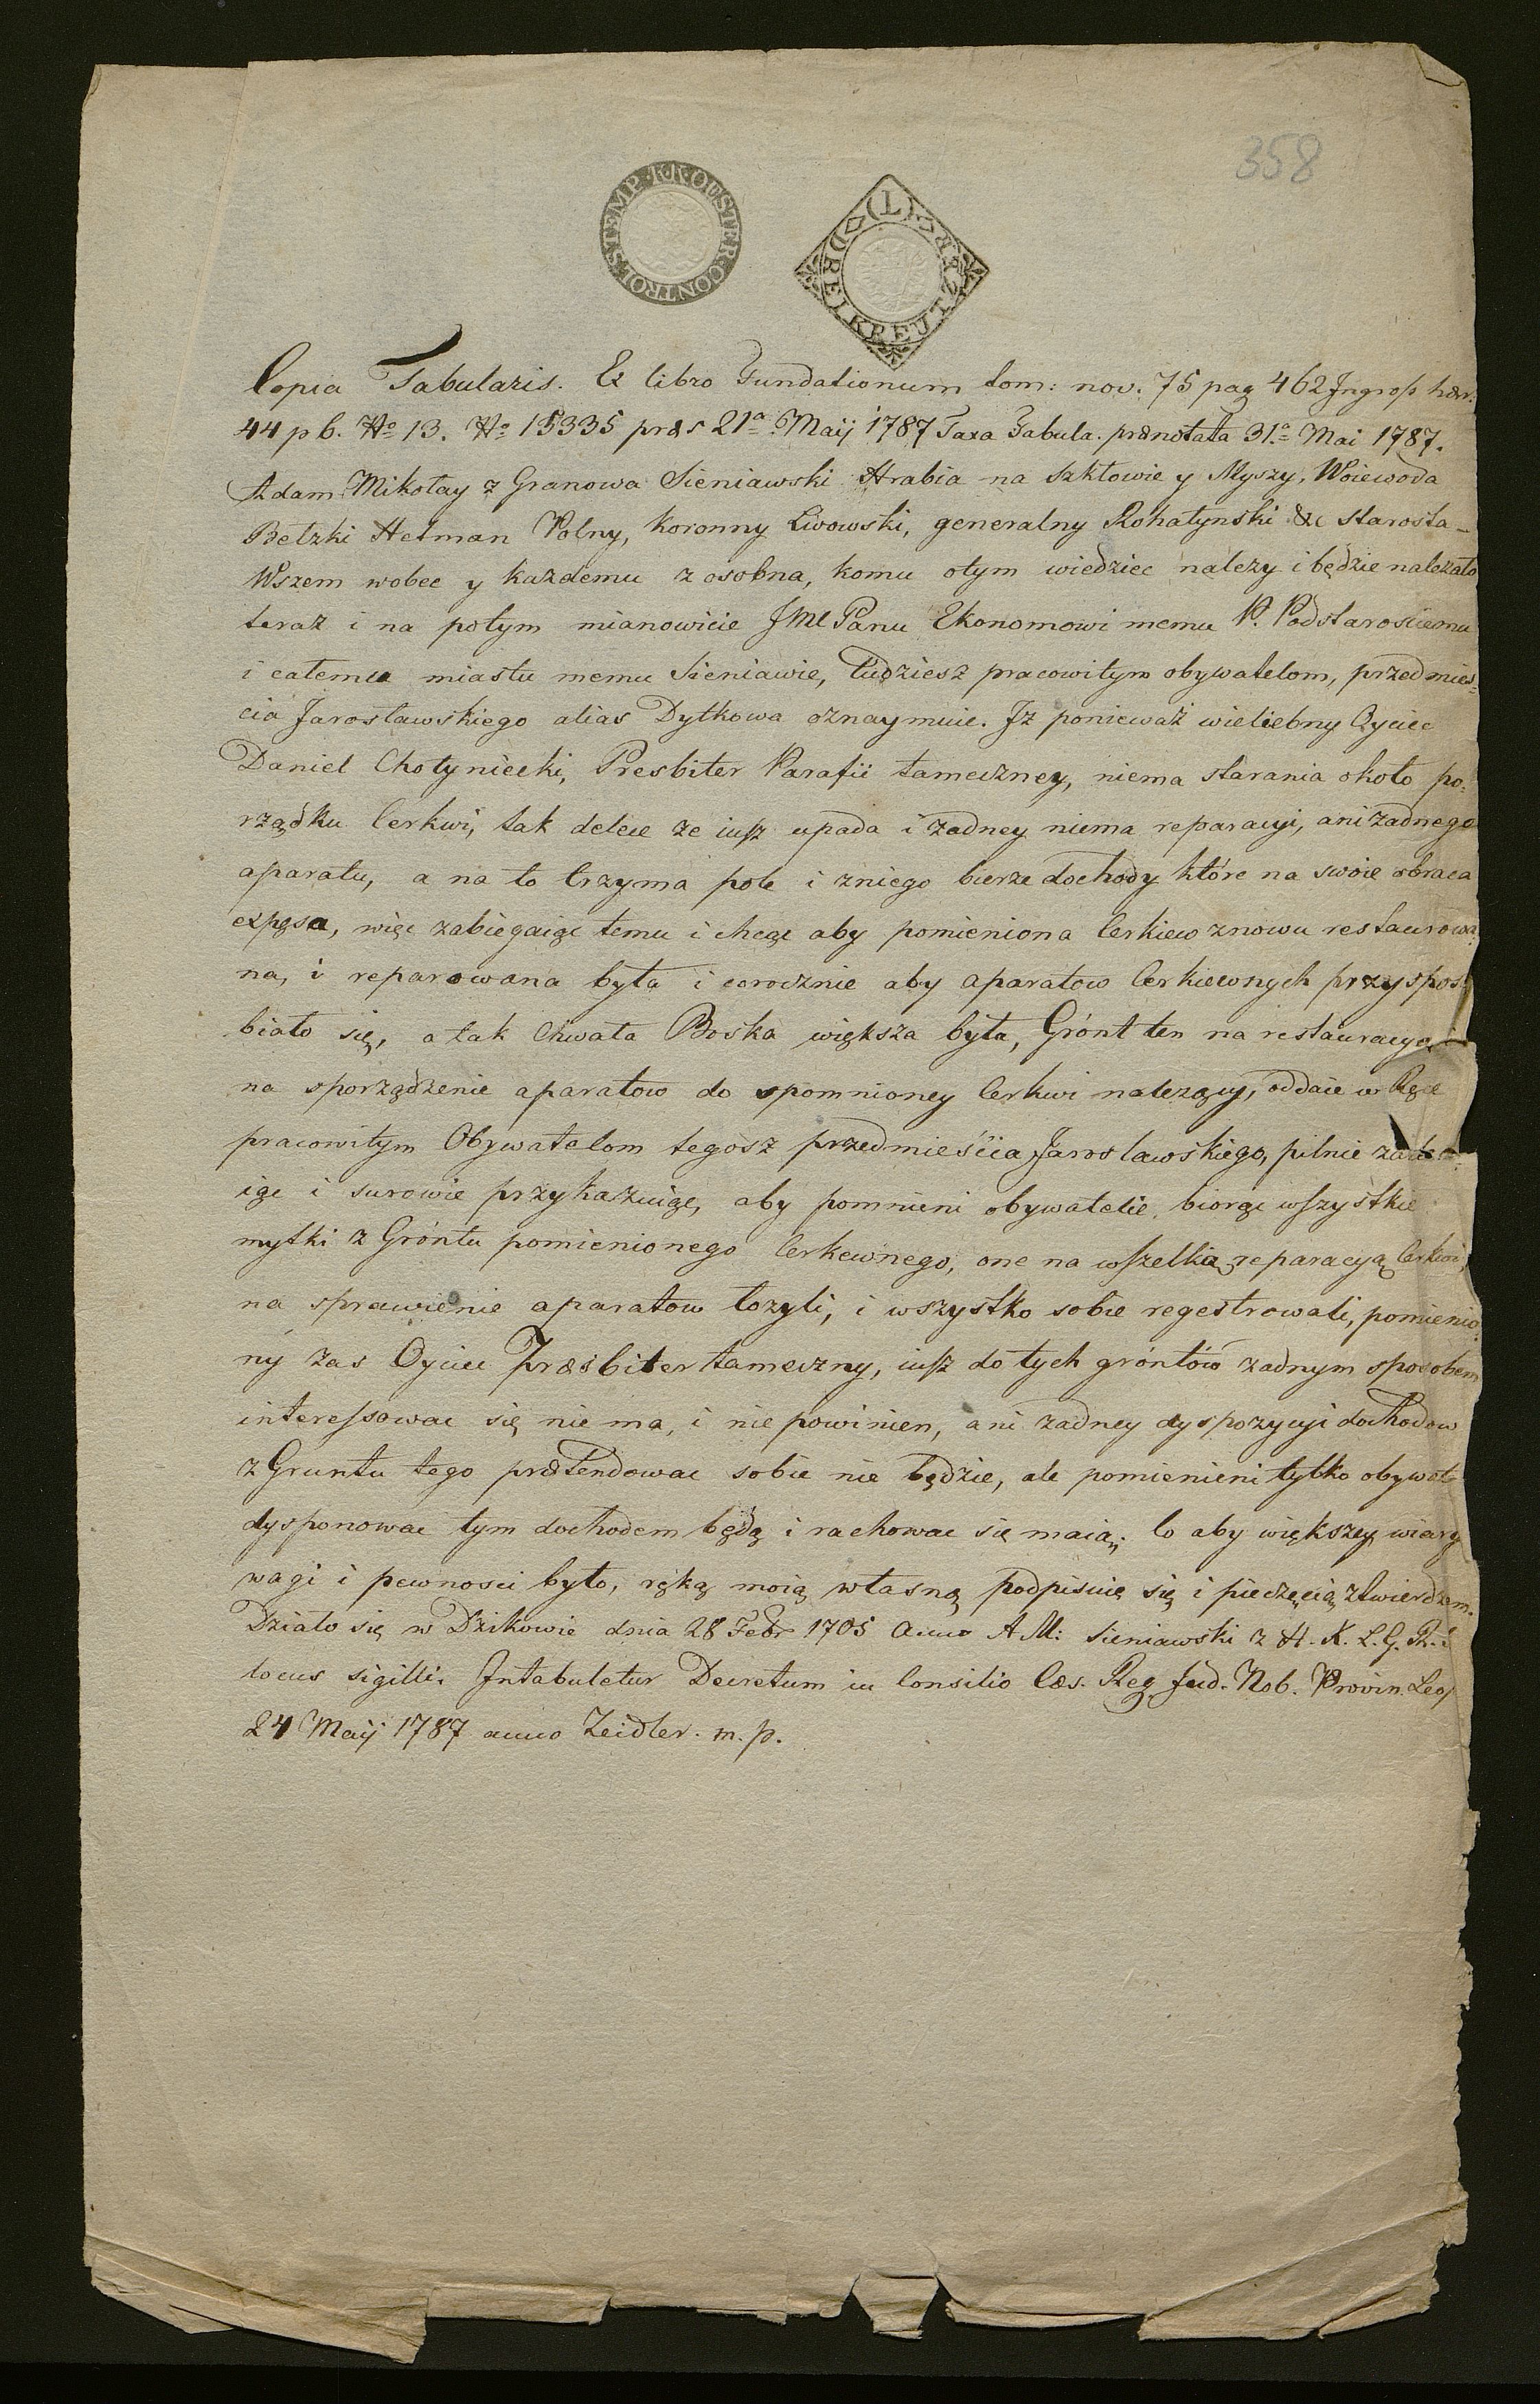 358
STEMP. KK. OESTER. CONTROLS
(L) DREI KREUTZER
Copia Tabularis. Ex libro Fundationum tom: nov. 75 pag 462 Ingross hær.
44 p b. No 13. No 15335 præs 21a Maij 1787 Taxa Tabula. prænotata 31a Mai 1787.
Adam Mikołay z Granowa Sieniawski Hrabia na Szkłowie y Myszy, Woiewoda
Bełzki Hetman Polny, Koronny Lwowski, generalny Rohatynski &c Starosta_
Wszem wobec y każdemu z osobna, komu otym wiedziec należy i będzie należało
teraz i na potym mianowicie JMC Panu Ekonomowi memu P. Podstarosciemu
i całemu miastu memu Sieniawie, tudziesz pracowitym obywatelom, przedmies=
cia Jarosławskiego alias Dytkowa oznaymuie. Jż ponieważ wielebny Oyciec
Daniel Chotyniecki, Presbiter Parafii tameczney, niema starania około po=
rządku Cerkwi, tak dalece że iusz upada i żadney niema reparacyi, ani żadnego
aparatu, a na to trzyma pole i zniego bierze dochody które na swoie obraca
expęsa, więc zabiegaiąc temu i chcąc aby pomieniona Cerkiew znowu restaurowa
na, i reparowana była i corocznie aby aparatow Cerkiewnych przyspos=
biało się, a tak Chwała Boska większa była, Grónt ten na restauracyą i
na sporządzenie aparatow do spomnioney Cerkwi należący, oddaie w Ręce
pracowitym Obywatelom tegosz przedmieścia Jarosławskiego, pilnie
iąc i surowie przykazuiąc, aby pomnieni obywatelie, biorąc wszystkie
mytki z Gróntu pomienionego Cerkewnego, one na wszelką reparacyą Cerkwi,
na sprawienie aparatow łożyli, i wszystko sobie regestrowali, pomienio=
ny zas Oyciec Præsbiter tameczny, iusz do tych gróntów żadnym sposobem
interessowac się nie ma, i nie powinien, ani żadney dyspozycyi dochodow
z Gruntu tego prætendowac sobie nie będzie, ale pomienieni tylko obywat
dysponowac tym dochodem będą i rachowac się maią; Co aby większey wiary
wagi i pewnosci było, ręką moią własną podpisuię się i pieczęcią ztwierdzam.
Działo się w Dzikowie dnia 28 Febr 1705 Anno A M: Sieniawski z H. K. L. G. R. S
locus sigilli. Intabuletur Decretum in Consilio Cæs. Reg Jud. Nob. Provin. Leo
24 Maij 1787 anno Zeidler. m. p.